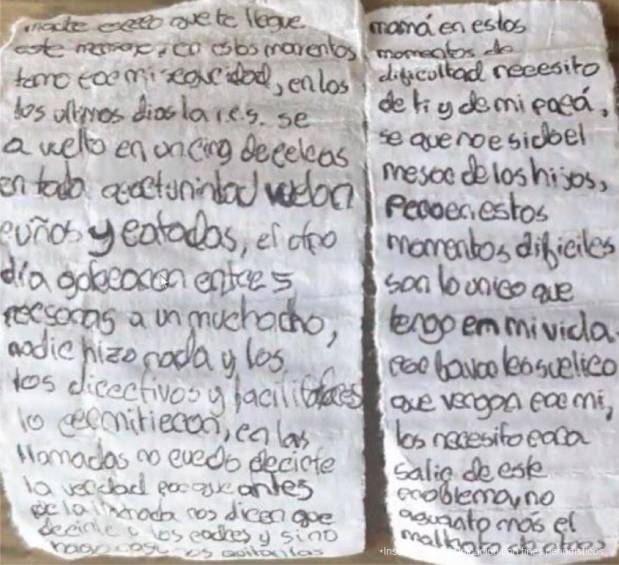 madre espero que te llegue
este mensaje, en estos momentos
temo por mi seguridad, en los
los ultimos dias la r.e.s. se
a vuelto en un ring de peleas
en toda oportunindad vuelan
puños y patadas, el otro
día golpearon entre 5
personas a un muchacho,
nadie hizo nada y los
los directivos y facilitadores
lo permitieron, en las
llamadas no puedo decirte
la verdad porque antes
de la llamada nos dicen que
decirle a los padres y si no
hago caso nos quitan las
mamá en estos
momentos de
dificultad necesito
de ti y de mi papá,
se que no e sido el
mejor de los hijos,
pero en estos
momentos dificiles
son lo unico que
tengo en mi vida.
por favor les suplico
que vengan por mi,
los necesito para
salir de este
problema, no
aguanto más el
maltrato de